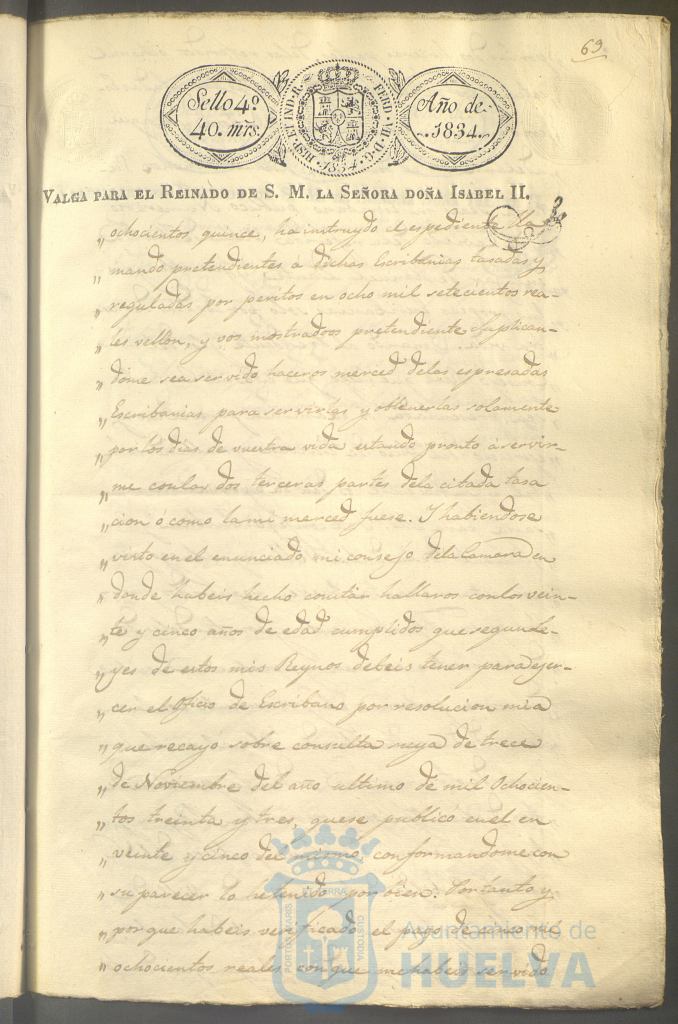 69
Sello 4º
40. mrs.
HISP. ET IND. R. FERD. VII. D. G.
1834
Año de
1834.
VALGA PARA EL REINADO DE S. M. LA SEÑORA DOÑA ISABEL II.
„ ochocientos quince, ha instruydo el espediente lla
„ mando pretendientes á dichas Escribanias tasadas y
„ reguladas por peritos en ocho mil setecientos rea-
„ les vellon, y vos mostradoos pretendiente suplican-
„ dome sea servido haceros merced delas espresadas
„ Escribanias para servirlas y obtenerlas solamente
„ por los dias de vuestra vida estando pronto á servir-
„ me conlas dos terceras partes dela citada tasa
„ cion ó como lami merced fuese. Y habiendose
„ visto enel enunciado mi consejo dela Camara en
„ donde habeis hecho constar hallaros conlos vein-
„ te y cinco años de edad cumplidos que segun le-
„ yes de estos mis Reynos debeis tener para ejer-
„ cer el Oficio de Escribano por resolucion mia
„ que recayó sobre consulta suya de trece
„ de Noviembre del año ultimo de mil Ochocien-
„ tos treinta y tres, quese publicó enel en
„ veinte y cinco del mismo, conformandome con
„ su parecer lo hetenido por bien. Por tanto y
„ por que habeis verificado el pago de cinco mil
„ ochocientos reales con que mehabeis servido
PORTUS MARIS ET TERRÆ CUSTODIA
Ayuntamiento de
HUELVA